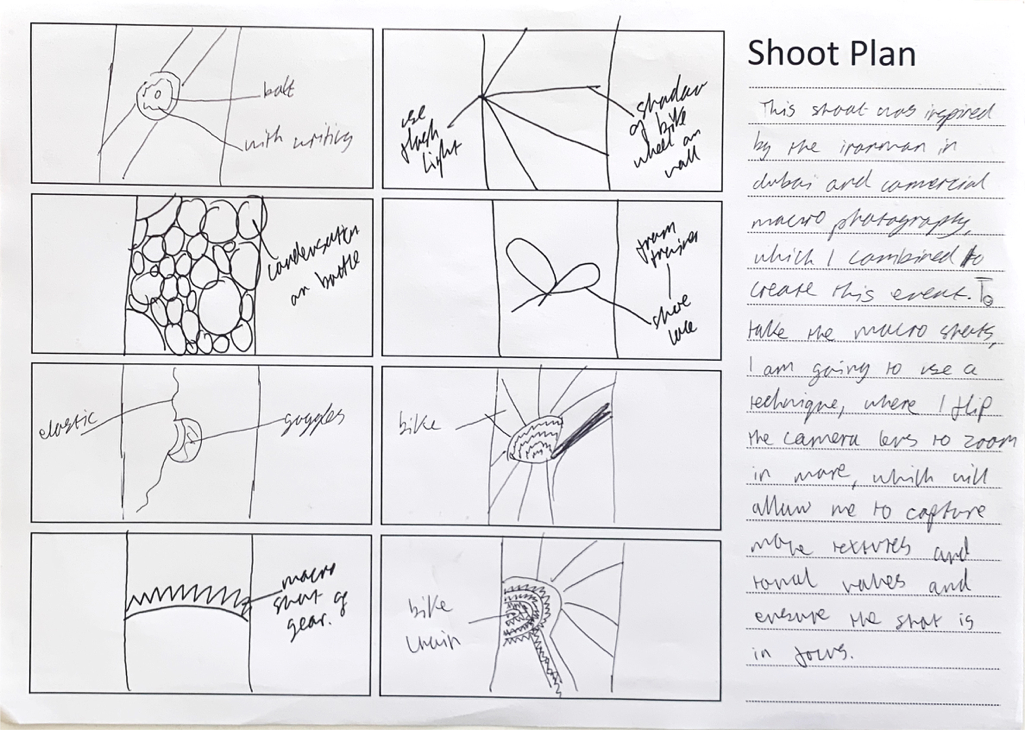 bolt
with writing
use
flash
light
shadow
of bike
wheel on
wall
condensation
on bottle
from
trainer
shoe
lace
elastic
goggles
bike
macro
shot of
gear.
bike
chain
Shoot Plan
This shoot was inspired
by the ironman in
dubai and comercial
macro photography,
which I combined to
create this event. To
take the macro shots,
I am going to use a
technique, where I flip
the camera lens to zoom
in more, which will
allow me to capture
more textures and
tonal values and
ensure the shot is
in focus.